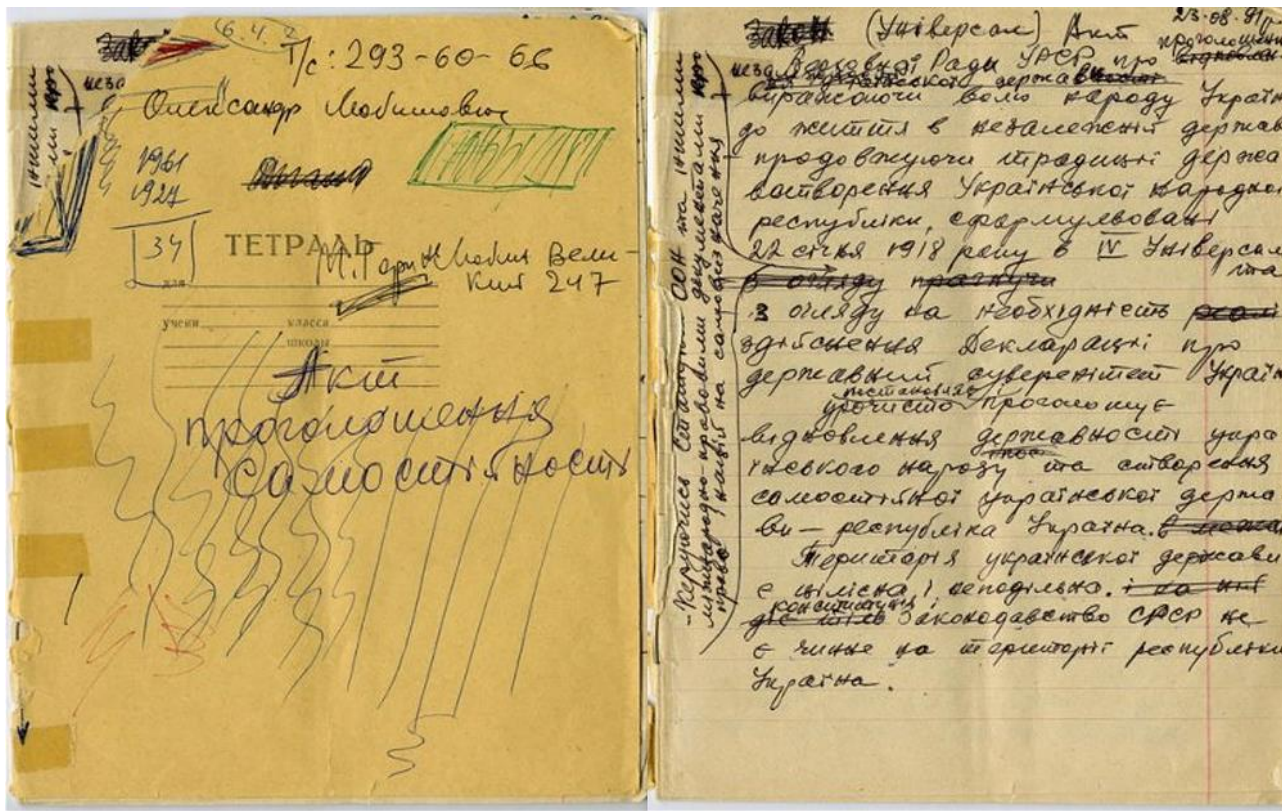 6.4.2
Т/с: 293-60-66
неза
Олександр Любимович
1961
1927
34
ТЕТРАДЬ
М. Горинь Любия Вели-
кий 247
для
учени класса
школы
Акт
проголошення
самостійності
23-08-91р.
Закон (Універсал) Акт
проголошення
Верховної Ради УРСР про
неза української держав
виражаючи волю народу Украін
до життя в незалежній держав
- продовжуючи традиції держа
вотворення Української народно
республіки, сформульовані
22 січня 1918 року в IV Універсал
та
з огляду прагнучи
з огляду на необхідність
здійснення Декларації про
державний суверенітет Україн
постановляє
урочисто проголошує
відновлення державності укра
їнського народу та створення
самостійної української держа
ви – республіка Україна. в межах
Територія української держави
є цілісна і неподільна. і на ній
конституція
діє тіль Законодавство СРСР не
є чинне на території республіки
Україна.
- Керуючись Статутом ООН та іншими
міжнародно-правовими документами про
право націй на самовизначення